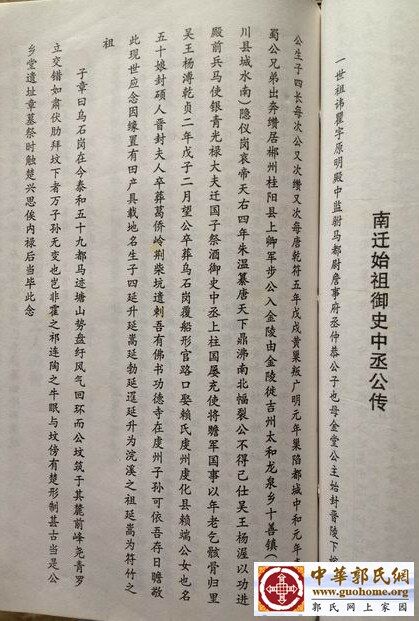 南迁始祖御史中丞公传
一世祖讳瞿字原明殿中监驸马都尉詹事府丞仲恭公子也母金堂公主始封晋陵下
公生子四长每次公又次缵又次每唐乾符五年戊戌黄巢叛广明元年巢陷都城中和元年
蜀公兄弟出奔缵居郴州桂阳县上卿军步公入金陵由金陵徙吉州太和龙泉乡十善镇（
川县城水南）隐仪岗哀帝天右四年朱温纂唐天下鼎沸南北幅裂公不得已仕吴王杨渥以功进
殿前兵马使银青光禄大夫迁国子祭酒御史中丞上柱国屡充使将赡军国事以年老乞骸骨归里
吴王杨溥乾贞二年戊子二月望公卒葬乌石岗覆船形官路口娶赖氏虔州虔化县赖端公女也名
五十娘封硕人晋封夫人卒葬葛侨岭荆柴坑遗刺吾有佛书功德寺在虔州子孙可依吾存日瞻敬
此现世应念因缘置有田产具载地名生子四延升延嵩延勃延暹延升为浣溪之祖延嵩为符竹之
祖
子章曰乌石岗在今泰和五十九都马迹塘山势盘纡风气回环而公坟筑于其麓前峰尧青罗
立交错如肃伏肋拜坟下者万子孙无变也岂非霍之祁连陶之牛眠与坟傍有楚形制甚古当是公
乡堂遗址章墓祭时触楚兴思俟内禄后当毕此念
中華郭氏網
www.guohome.org
郭氏网上家园